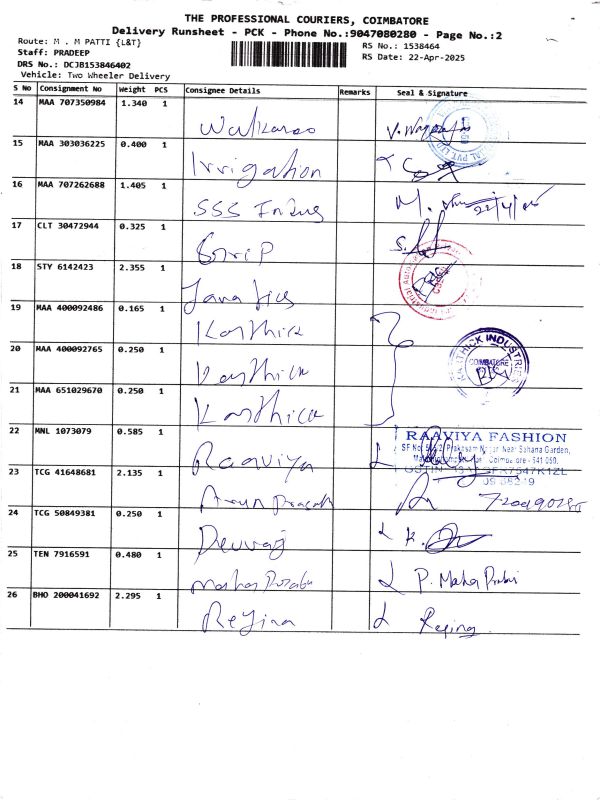 THE PROFESSIONAL COURIERS, COIMBATORE
Delivery Runsheet - PCK - Phone No.:9047080280 - Page No.:2
Route: M . M PATTI {L&T}
RS No.: 1538464
Staff: PRADEEP
RS Date: 22-Apr-2025
DRS No.: DCJB153846402
Vehicle: Two Wheeler Delivery
S No Consignment No Weight PCS Consignee Details Remarks Seal & Signature
14 MAA 707350984 1.340 1
15 MAA 303036225 0.400 1 Irrigation
16 MAA 707262688 1.405 1 SSS
17 CLT 30472944 0.325 1
18 STY 6142423 2.355 1
19 MAA 400092486 0.165 1 Karthick
20 MAA 400092765 0.250 1 Karthick
KARTHICK INDUSTRIES
COIMBATORE
21 MAA 651029670 0.250 1 Karthick
22 MNL 1073079 0.585 1 Raaviya
RAAVIYA FASHION
Near Sahana Garden,
Coimbatore - 541 050.
23 TCG 41648681 2.135 1 Arun Prasath
24 TCG 50849381 0.250 1 Devraj
25 TEN 7916591 0.480 1 Maha Prabu P. Maha Prabu
26 BHO 200041692 2.295 1 Rejina Rejina